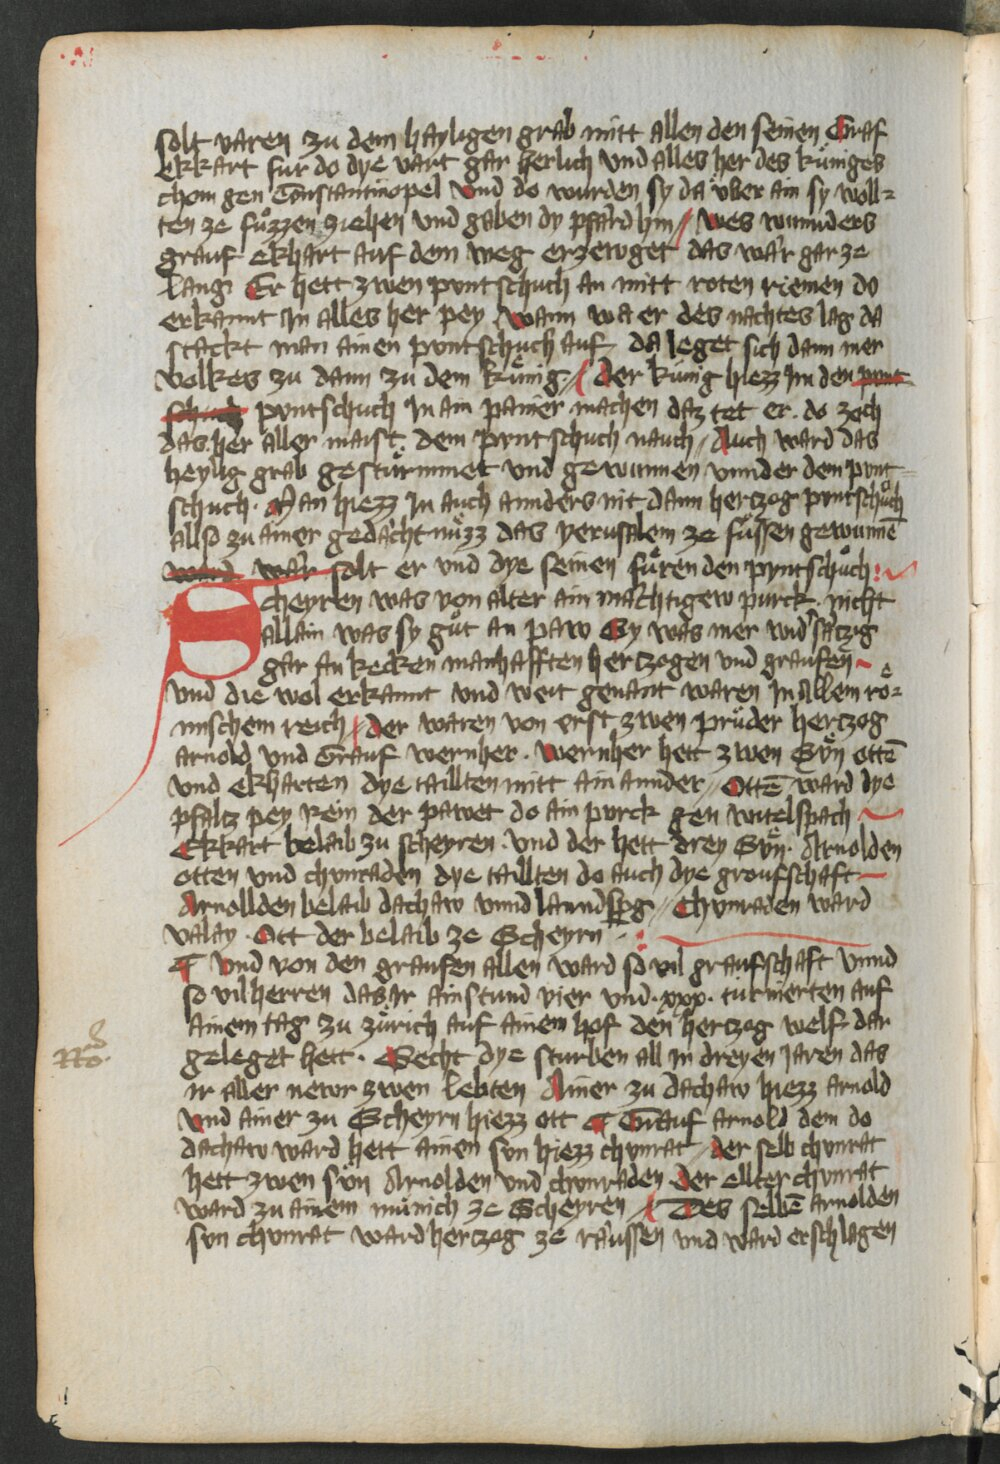 solt varen zu dem hayligen grab mitt allen den seinen Graf
Ekkart fur do dye vart gar herlich vnd alles her des kuniges
chom gen Constantinopel vnd do wurden sy da vber ain sy woll-
ten ze fůzzen ziehen vnd gaben dy pfärd hin / wes wunnders
grauf Ekhart auf dem weg erzewget das wär gar ze
lang Er hett zwen puntschuch an mitt roten riemen do
erkannt In alles her pey / wann wa er des nachtes lag da
stackt man ainen puntschůch auf da leget sich dann mer
volkes zu dann zu dem künig / der künig hiezz Im den punt
schuch puntschuch In ain panier machen daz tet er. do zoch
das her aller maist dem puntschuch nauch / Auch ward das
heylig grab gestürmmet vnd gewunnen vnnder dem punt-
schuch. Man hiezz In auch annders nit dann hertzog puntschůch
allso zu ainer gedächtnüzz das yerusalem ze fůssen gewunnē
ward wär solt er vnd dye seinen fůren den pyntschůch
Scheyren was von alter ain mächtigew purck. nicht
allain was sy gůt an paw Sy was mer wid'sätzig
gar an kecken manhafften hertzogen vnd graufen
vnd die wol erkannt vnd weit genant waren In allem rö-
mischem reich / der waren von erst zwen prüder hertzog
arnold vnd Grauf wernher. wernher hett zwen Sün ottē
vnd ekharten dye taillten mitt ain annder / Ottē ward dye
pfaltz pey Rein der pawet do ain purck gen witelspach
Ekkart belaib zu scheyren. vnd der hett drey Sün. Arnolden
otten vnd chunraden dye taillten do auch dye graufschaft
Arnollden belaib dachaw vnnd lanndsp̄g / Chunraden ward
valay. Ott der belaib ze Scheyrn
¶ vnd von den graufen allen ward so vil graufschaft vnnd
so vil herren das Ir ainstund vier vnd .xxx. turnierten auf
ainem tag zu zürich auf ainem hof den hertzog welf dar
geleget hett. Secht dye sturben all in dreyen Jaren das
ir aller newr zwen lebten Ainer zu dachaw hiezz arnold
vnd ainer zu Scheyrn hiezz ott ¶ Grauf arnold dem do
dachaw ward hett ainen sun hiezz chunrat / der selb chunrat
hett zwen sün Arnolden vnd chunraden der ellter chunrat
ward zu ainem münich ze Scheyren / Des selbē arnolden
sun chunrat ward hertzog ze räussen vnd ward erschlagen